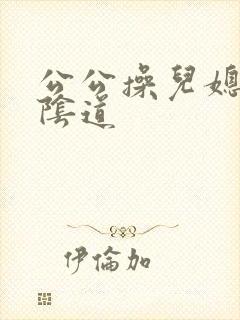 公公操兒媳
陰道
伊倫加